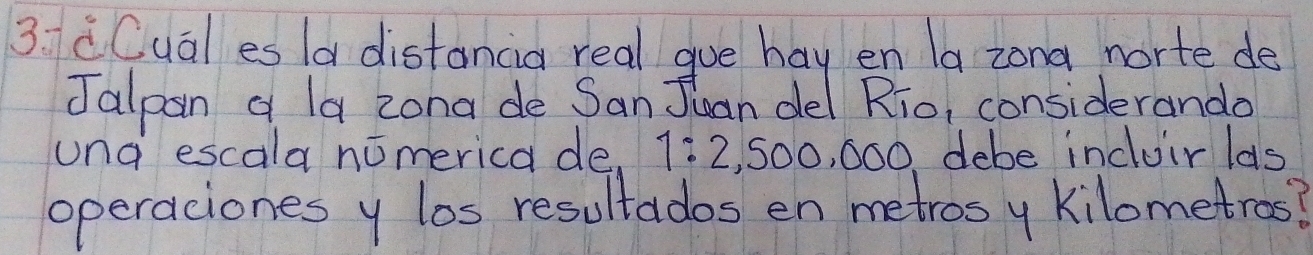 3.- ¿Cuál es la distancia real que hay en la zona norte de
Jalpan a la zona de San Juan del Río, considerando
una escala númerica de, 1:2,500,000, debe incluir las
operaciones y los resultados en metros y Kilometros?